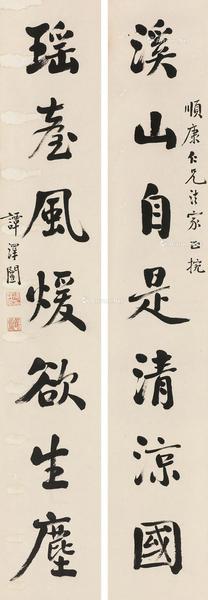 溪山自是清涼國
順康仁兄法家正捥
瑶臺風煖欲生塵
譚澤闓